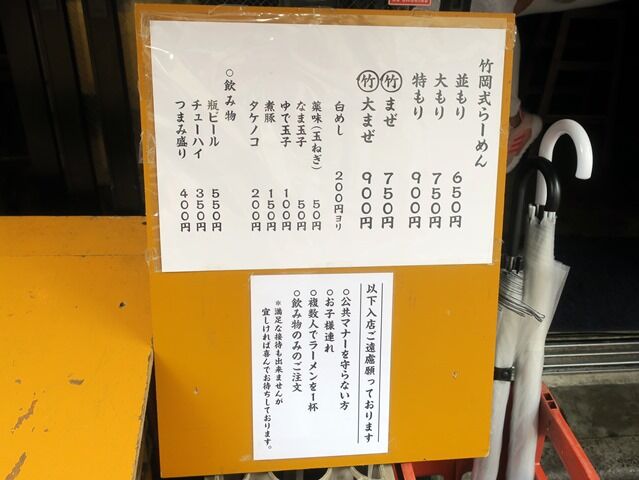 竹岡式らーめん
並もり 650円
大もり 750円
特もり 900円
竹 まぜ 750円
竹 大まぜ 900円
白めし 200円ヨリ
薬味(玉ねぎ) 50円
なま玉子 50円
ゆで玉子 100円
煮豚 150円
タケノコ 200円
○飲み物
瓶ビール 550円
チューハイ 350円
つまみ盛り 400円
以下入店ご遠慮願っております
○公共マナーを守らない方
○お子様連れ
○複数人でラーメンを1杯
○飲み物のみのご注文
※満足な接待も出来ませんが
宜しければ喜んでお待ちしております。